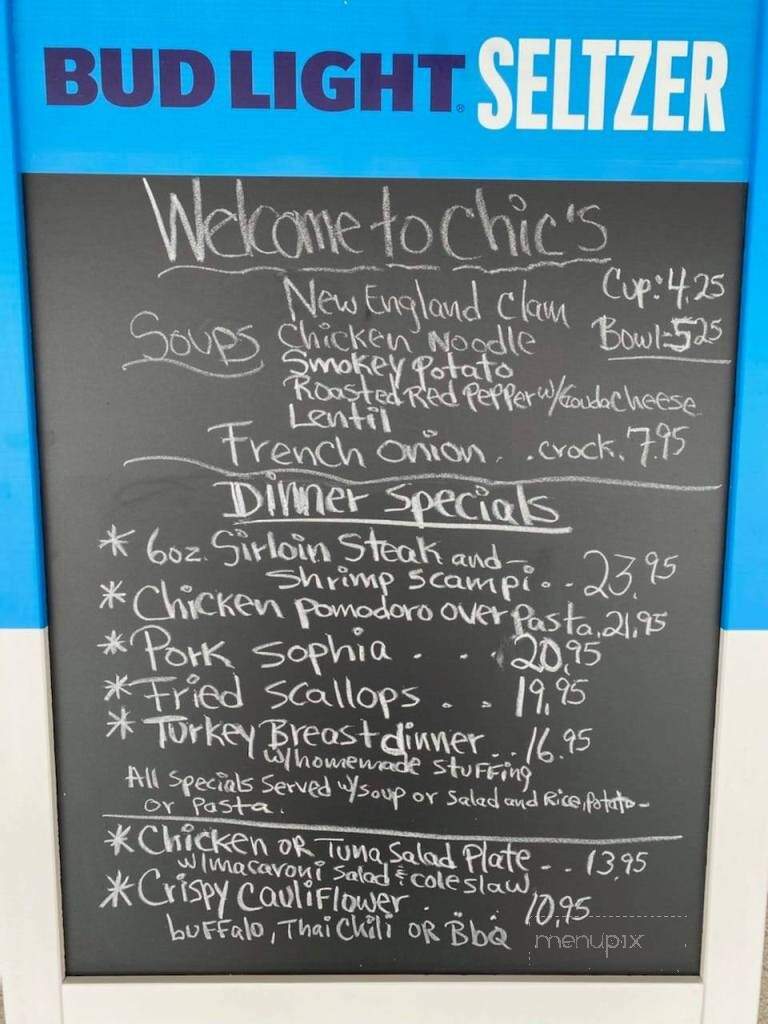 BUD LIGHT SELTZER
Welcome to Chic's
New England Clam Cup: 4.25
Soups Chicken Noodle Bowl-5.25
Smokey Potato
Roasted Red Pepper w/Gouda Cheese
Lentil
French onion . . crock. 7.95
Dinner Specials
* 6oz. Sirloin Steak and-
Shrimp Scampi . . 23.95
* Chicken pomodoro over Pasta. 21.95
* Pork Sophia . . . 20.95
* Fried Scallops . . 19.95
* Turkey Breast dinner . . 16.95
w/homemade stuffing
All Specials Served w/soup or Salad and Rice, Potato-
or Pasta.
* Chicken OR Tuna Salad Plate . . 13.95
w/macaroni Salad & coleslaw
* Crispy Cauliflower . . 10.95
buffalo, Thai Chili OR BbQ
menupix